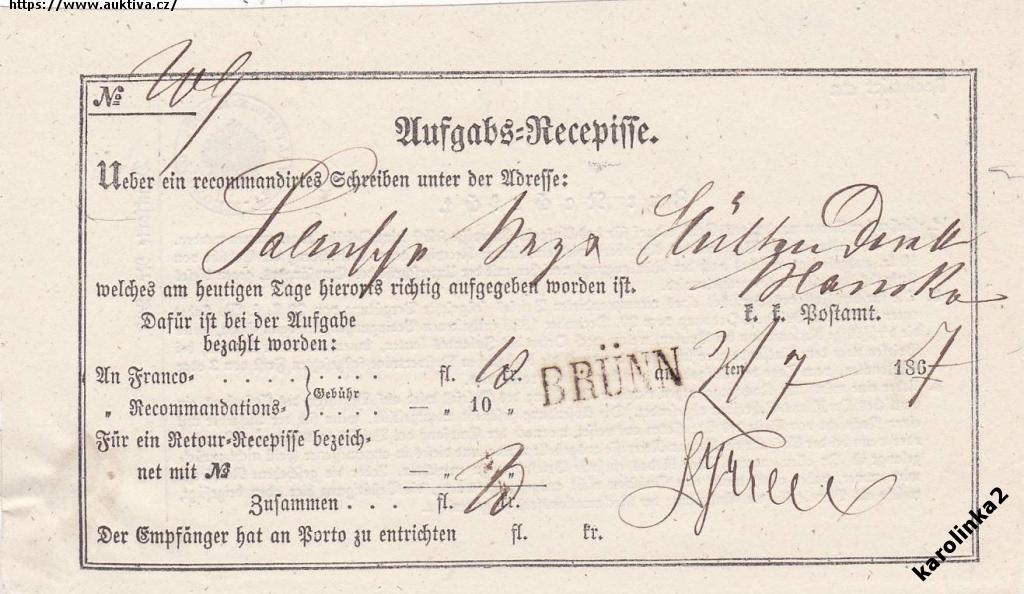 https://www.auktiva.cz/
№
Aufgabs-Recepisse.
Ueber ein recommandirtes Schreiben unter der Adresse:
Blansko
welches am heutigen Tage hierorts richtig aufgegeben worden ist.
k. k. Postamt.
Dafür ist bei der Aufgabe
bezahlt worden:
An Franco- . . . . . Gebühr . . . . fl. 10 kr.
BRÜNN am 3/ten 7 1867
„ Recommandations- . . . . — „ 10 „
Für ein Retour-Recepisse bezeich-
net mit № — „ „
Zusammen . . . fl. kr.
Der Empfänger hat an Porto zu entrichten fl. kr.
karolinka2